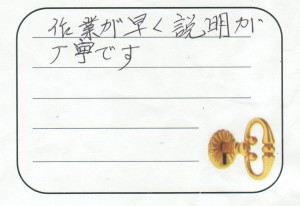 作業が早く説明が
丁寧です